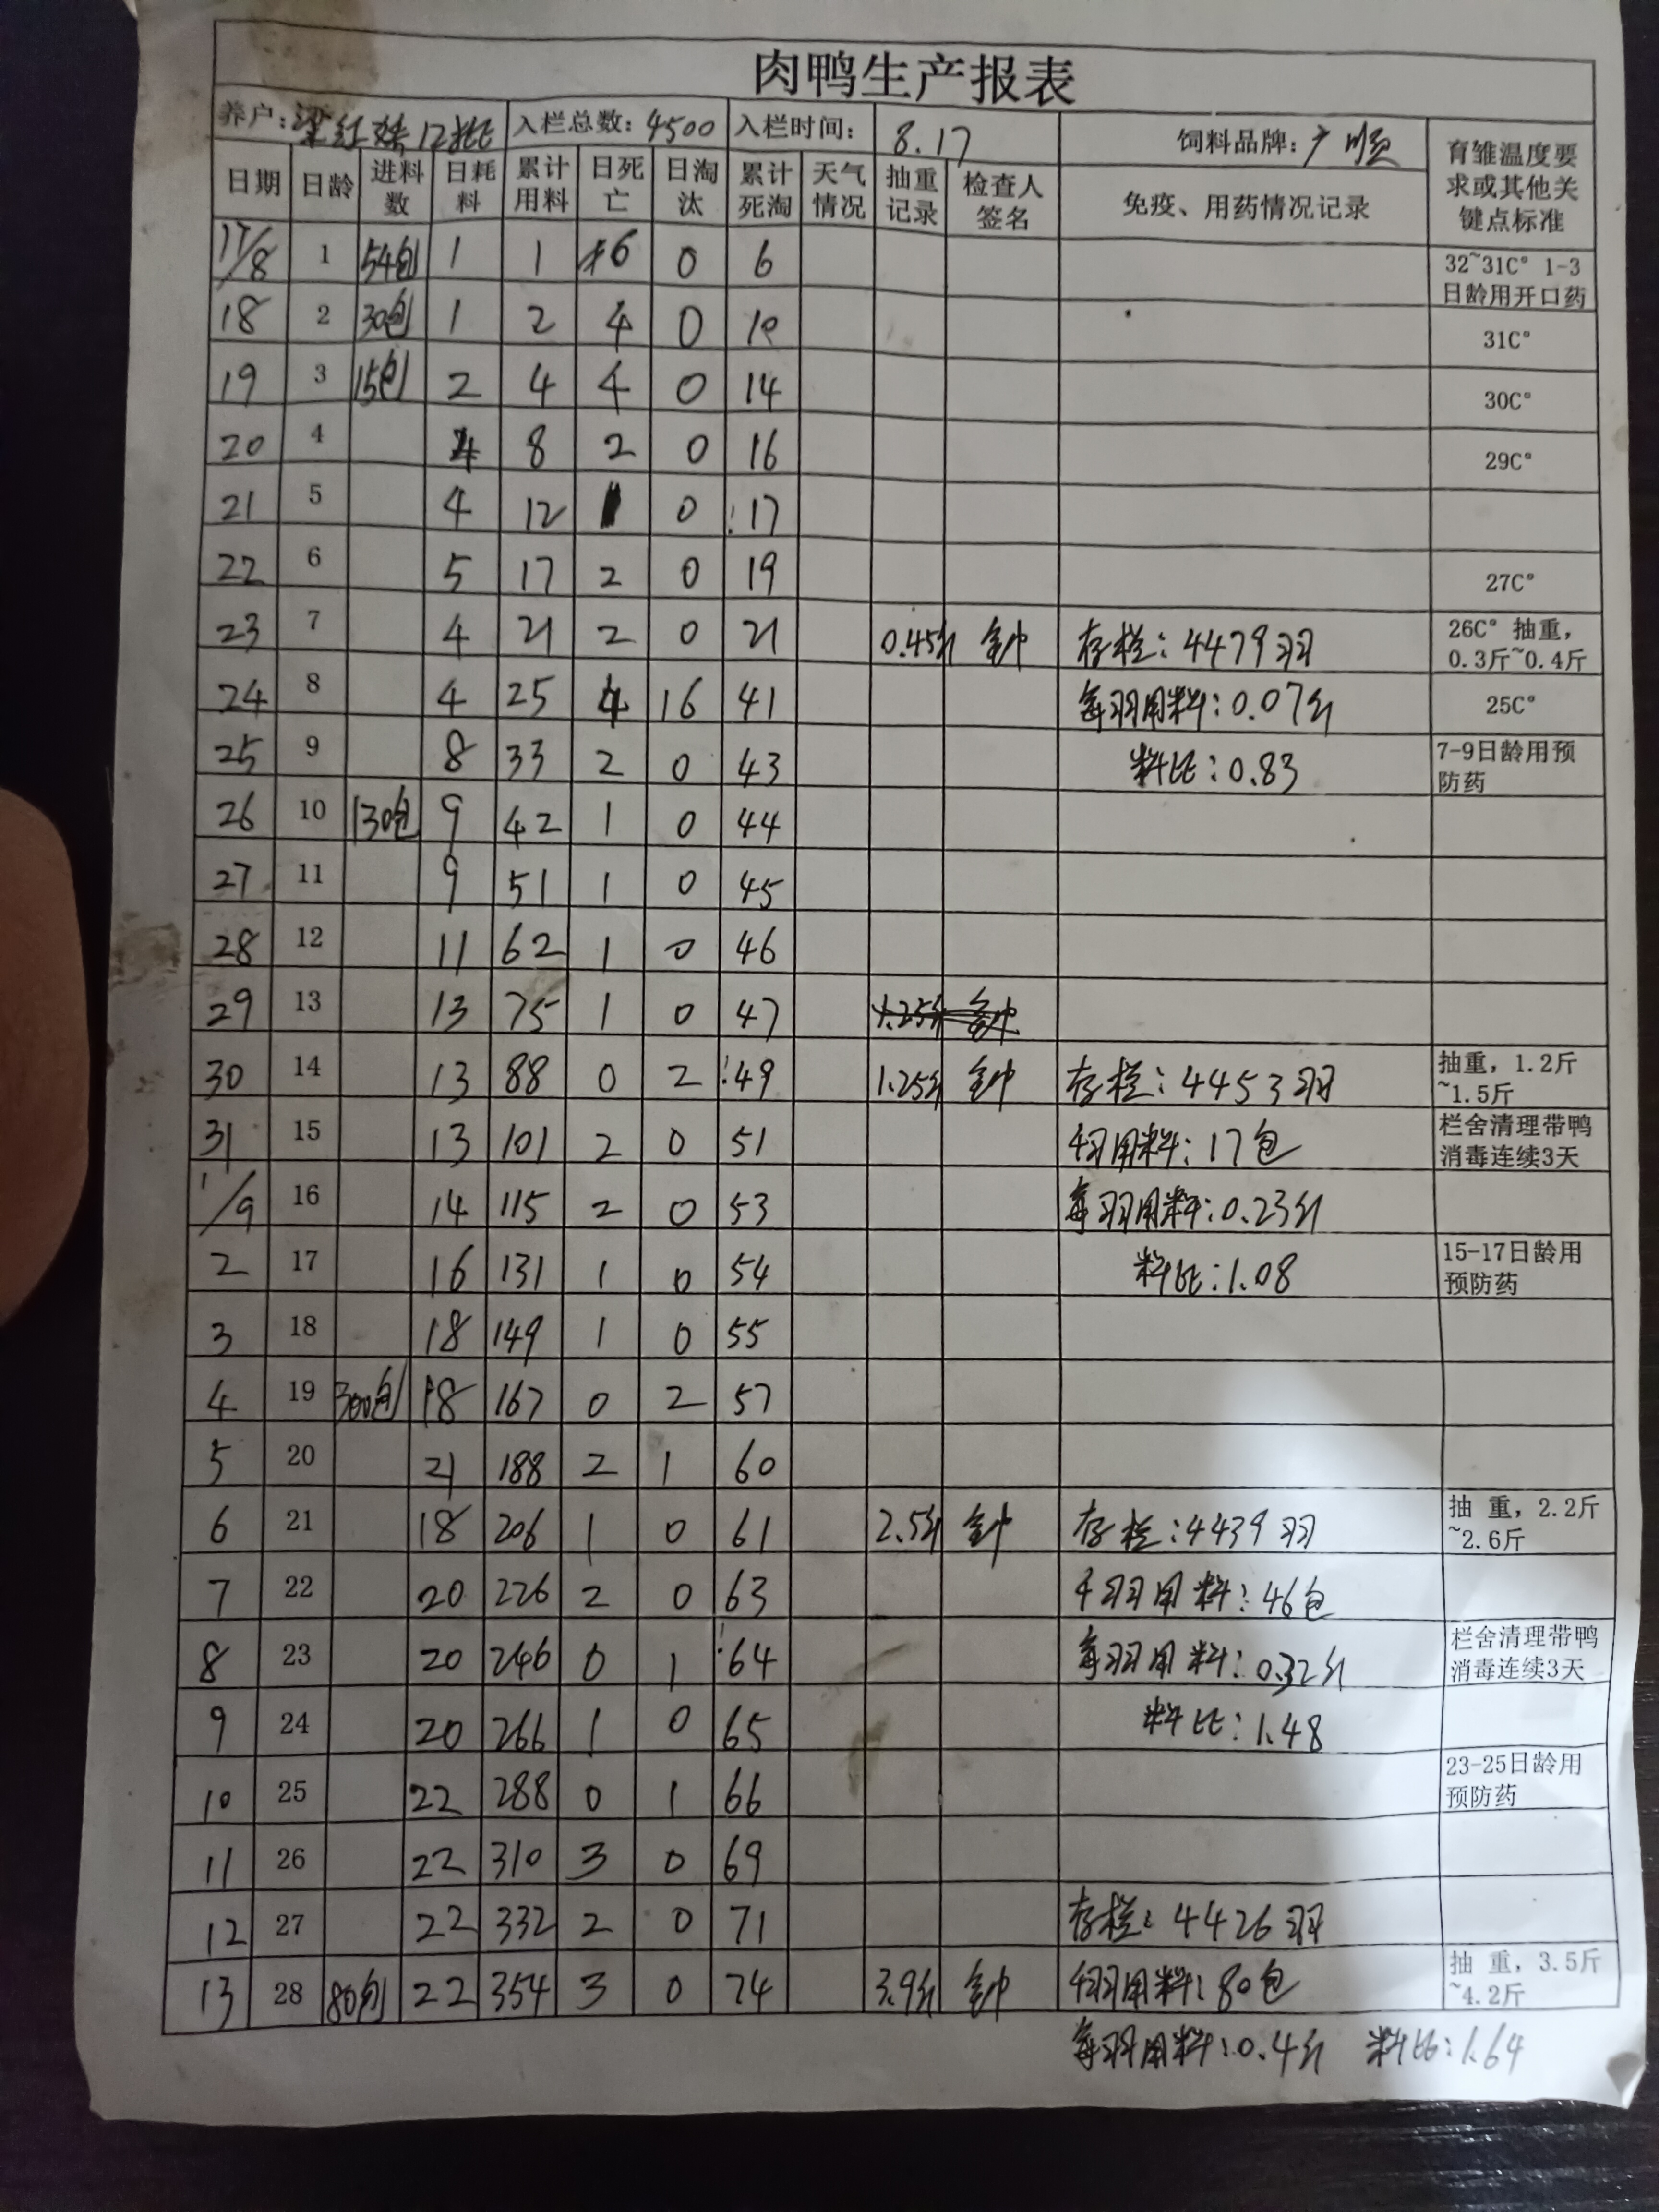 肉鸭生产报表
养户: 梁红 12批 入栏总数: 4500 入栏时间: 8.17 饲料品牌: 广顺 育雏温度要求或其他关键点标准
日期 日龄 进料数 日耗料 累计用料 日死亡 日淘汰 累计死淘 天气情况 抽重记录 检查人签名 免疫、用药情况记录
17/8 1 54包 1 1 6 0 6 32~31C° 1-3日龄用开口药
18 2 30包 1 2 4 0 10 31C°
19 3 15包 2 4 4 0 14 30C°
20 4 4 8 2 0 16 29C°
21 5 4 12 1 0 17
22 6 5 17 2 0 19 27C°
23 7 4 21 2 0 21 0.45斤 钟 存栏: 4479羽 26C° 抽重, 0.3斤~0.4斤
24 8 4 25 4 16 41 每羽用料: 0.07斤 25C°
25 9 8 33 2 0 43 料比: 0.83 7-9日龄用预防药
26 10 130包 9 42 1 0 44
27 11 9 51 1 0 45
28 12 11 62 1 0 46
29 13 13 75 1 0 47 1.25斤 钟
30 14 13 88 0 2 49 1.25斤 钟 存栏: 4453羽 抽重, 1.2斤~1.5斤
31 15 13 101 2 0 51 千羽用料: 17包 栏舍清理带鸭消毒连续3天
1/9 16 14 115 2 0 53 每羽用料: 0.23斤
2 17 16 131 1 0 54 料比: 1.08 15-17日龄用预防药
3 18 18 149 1 0 55
4 19 300包 18 167 0 2 57
5 20 21 188 2 1 60
6 21 18 206 1 0 61 2.5斤 钟 存栏: 4439羽 抽 重, 2.2斤~2.6斤
7 22 20 226 2 0 63 千羽用料: 46包
8 23 20 246 0 1 64 每羽用料: 0.32斤 栏舍清理带鸭消毒连续3天
9 24 20 266 1 0 65 料比: 1.48
10 25 22 288 0 1 66 23-25日龄用预防药
11 26 22 310 3 0 69
12 27 22 332 2 0 71 存栏: 4426羽
13 28 80包 22 354 3 0 74 3.9斤 钟 千羽用料: 80包 抽 重, 3.5斤~4.2斤
每羽用料: 0.4斤 料比: 1.64